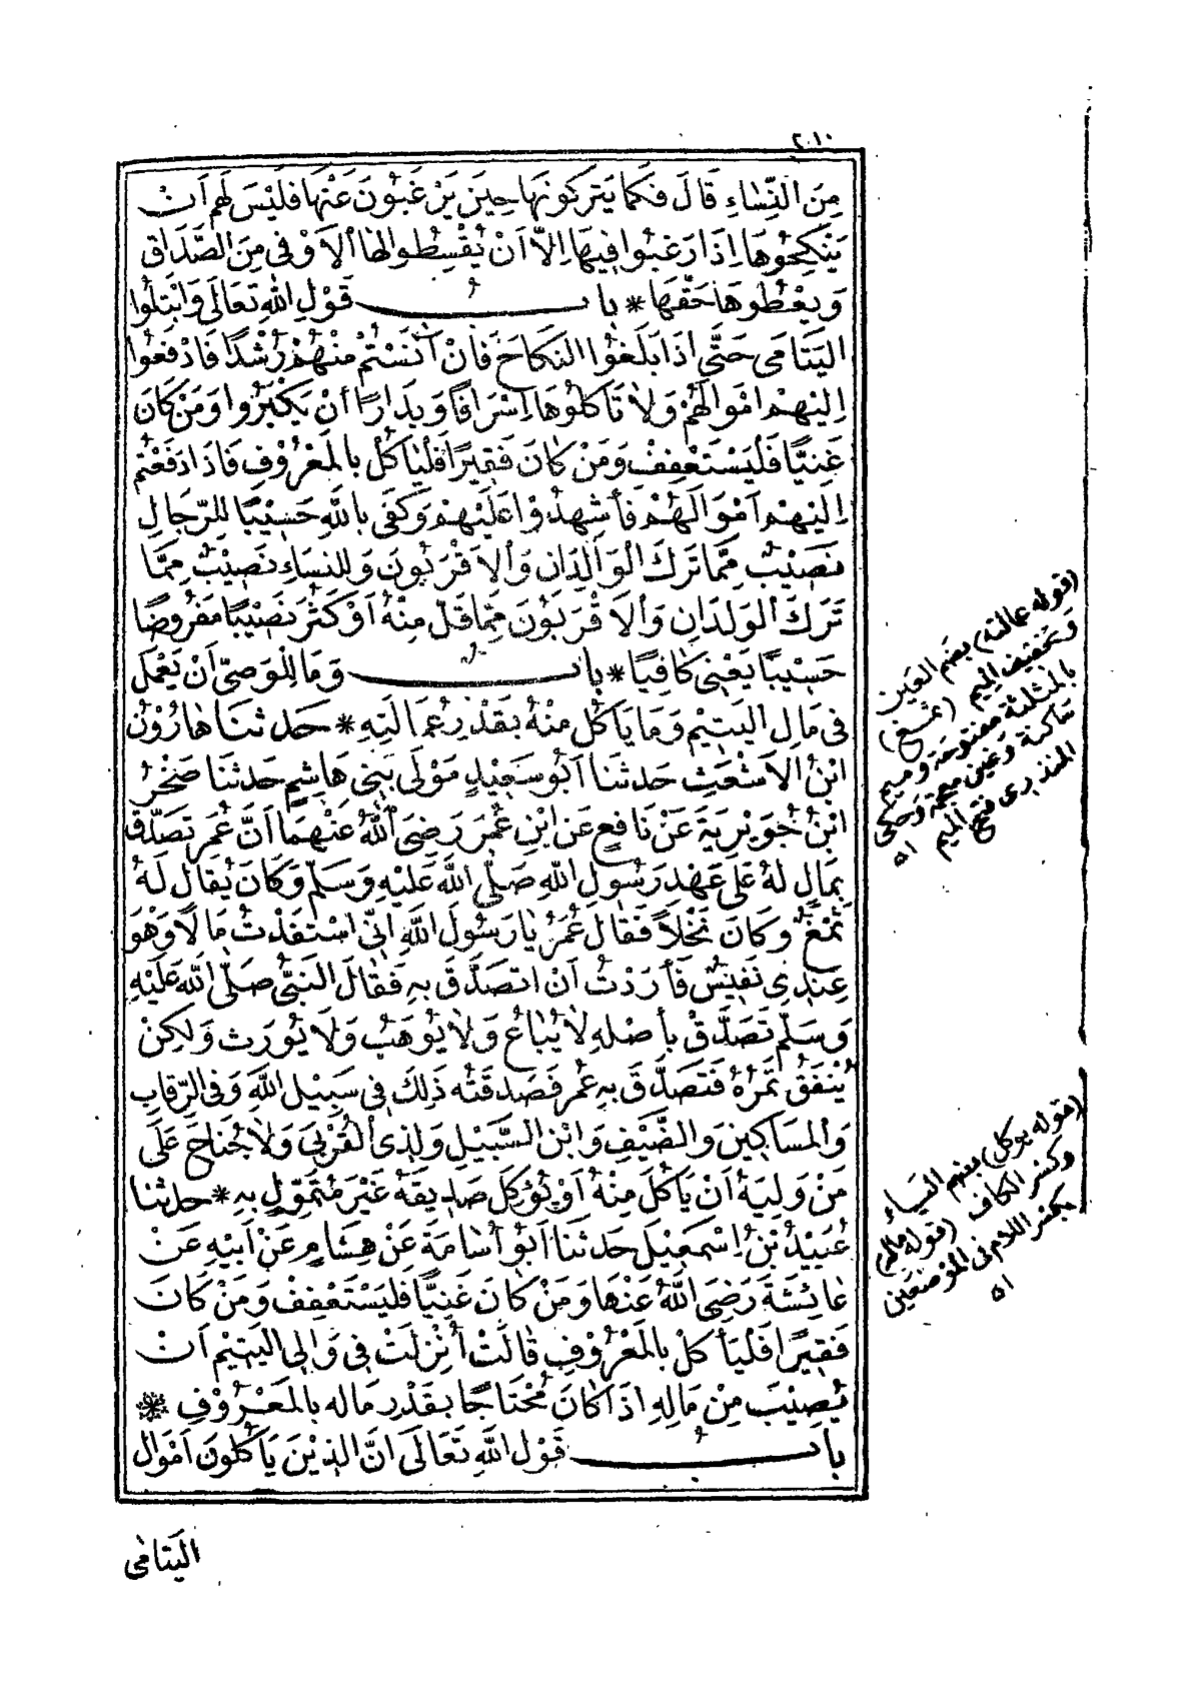 ٢٠١٠
مِنَ النِّسَاءِ قَالَ فَكَمَا يَتْرُكُونَهَا حِيْنَ يَرْغَبُونَ عَنْهَا فَلَيْسَ لَهُم اَنْ
يَنْكِحُوهَا اِذَا رَغِبُوا فِيهَا اِلَّا اَنْ يُقْسِطُوا لَهَا اْلاَوْفى مِنَ الصَّدَاقِ
وَيُعْطُوهَا حَقَّهَا * بابُ قَوْلِ اللهِ تَعَالَى وَابْتَلُوا
اليَتَامَى حَتَّى اِذَا بَلَغُوا النِكَاحَ فَاِنْ آنَسْتُمْ مِنْهُمْ رُشْدًا فَادْفَعُوا
اِلَيْهِمْ اَمْوَالَهُمْ وَلاَ تَأكُلُوهَا اِسْرَافًا وَبِدَارًا أنْ يَكْبَرُوا وَمَنْ كَانَ
غَنِيًّا فَلْيَسْتَعْفِفْ وَمَنْ كَانَ فَقِيرًا فَلْيَأكُلْ بِالمَعْرُوْفِ فَاِذَا دَفَعْتُمْ
اِلَيْهِمْ اَمْوَالَهُمْ فَأشْهِدُوْا عَلَيْهِمْ وَكَفَى بِاللّهِ حَسِيْبًا لِلرِّجَالِ
نَصِيْبٌ مِمَّا تَرَكَ الْوَالِدَانِ وَاْلاَقْرَبُونَ وَلِلنسَاءِ نَصِيْبٌ مِمَّا
تَرَكَ اْلوَلِدَانِ وَاْلاَقْرَبُونَ مِمَّا قَلَّ مِنْهُ اَوْ كَثُرَ نَصِيْبًا مَفْرُوضًا
حَسِيْبًا يَعْنِى كَافِيًا * بابُ وَمَا لِلْوَصِىِّ اَنْ يَعْمَلَ
فِى مَالِ اليَتِيْمِ وَمَا يَأكُلُ مِنْهُ بِقَدْرِ عُمَالَتِهِ * حَدثنَا هَارُوْنُ
ابْنُ الاَشْعَثِ حَدثنَا اَبُو سَعِيْدٍ مَوْلَى بَنِى هَاشِمٍ حَدثنَا صَخْرُ
ابْنُ جُوَيْرِيَةَ عَنْ نَافِعٍ عَنِ ابْنِ عُمَرَ رَضِىَ اللّهُ عَنْهُمَا اَنَّ عُمَرَ تَصَدَّقَ
بِمَالٍ لَهُ عَلَى عَهْدِ رَسُولِ اللّهِ صَلَّى اللّهُ عَلَيْهِ وَسَلَّمَ وَكَانَ يُقَالُ لَهُ
ثَمْغٌ وَكَانَ نَخْلاً فَقَالَ عُمَرُ يَا رَسُولَ اللّهِ اِنِّى اسْتَفَدْتُ مَالًا وَهْوَ
عِنْدِى نَفِيْسٌ فَأَرَدْتُ اَنْ اَتَصَدَّقَ بِهِ فَقَالَ النَبِىُّ صَلَّى اللّهُ عَلَيْهِ
وَسَلَّمَ تَصَدَّقْ بِأَصْلِهِ لَا يُبَاعُ وَلَا يُوْهَبُ وَلَا يُوْرَث وَلكِنْ
يُنْفَقُ ثَمَرُهُ فَتَصَدَّقَ بِهِ عُمَر فَصَدقَتُه ذَلِكَ فِى سَبِيْلِ اللّهِ وَفى الرِّقَابِ
وَالمَسَاكِيْنِ وَالضَّيْفِ وَابْنِ السَّبِيْلِ وَلِذِى القُرْبَى وَلَا جُنَاحَ عَلَى
مَنْ وَلِيَهُ اَنْ يَأكُلَ مِنْهُ اَوْ يُؤكِلَ صَدِيقَهُ غَيْرَ مُتَمَوِّلٍ بِهِ * حَدثنا
عُبَيْدُ بْنُ اِسْمَعِيْلَ حَدثنَا اَبُو اُسَامَةَ عَنْ هِشَامٍ عَنْ اَبِيْهِ عَنْ
عَائِشَةَ رَضِىَ اللّهُ عَنْهَا وَمَنْ كَانَ غَنِيًّا فَليَسْتَعْفِفْ وَمَنْ كَانَ
فَقِيرًا فَلْيَأكُلْ بِالمَعْرُوْفِ قَالَتْ أُنْزِلَتْ فِى وَالِى اليَتِيْمِ اَنْ
يُصِيْبَ مِنْ مَالِهِ اِذَا كَانَ مُحْتَاجًا بِقَدْرِ مَالِه بِالمَعْرُوْفِ *
بابُ قَوْلِ اللّهِ تَعَالَى اِنَّ الذِيْنَ يَأكُلُونَ اَمْوَالَ
اليَتَامَى
(قوله عمالته) بضم العين
وتخفيف الميم (ثمغ)
بالمثلثة مفتوحة وميم
ساكنة وغين معجمة وحكى
المنذرى فتح الميم
اه
(قوله يوكل) بضم الياء
وكسر الكاف (قوله ماله)
بكسر اللام فى الموضعين
اه